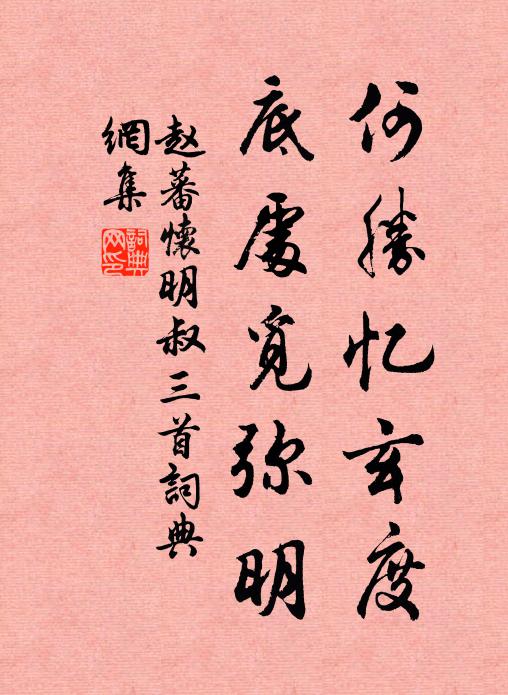 何勝忆玄度
底處覓弥明
赵蕃懷明叔三首詞典
網集
詞典網印